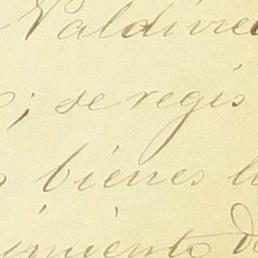 Valdivie
; se regis
bienes l
imiento de